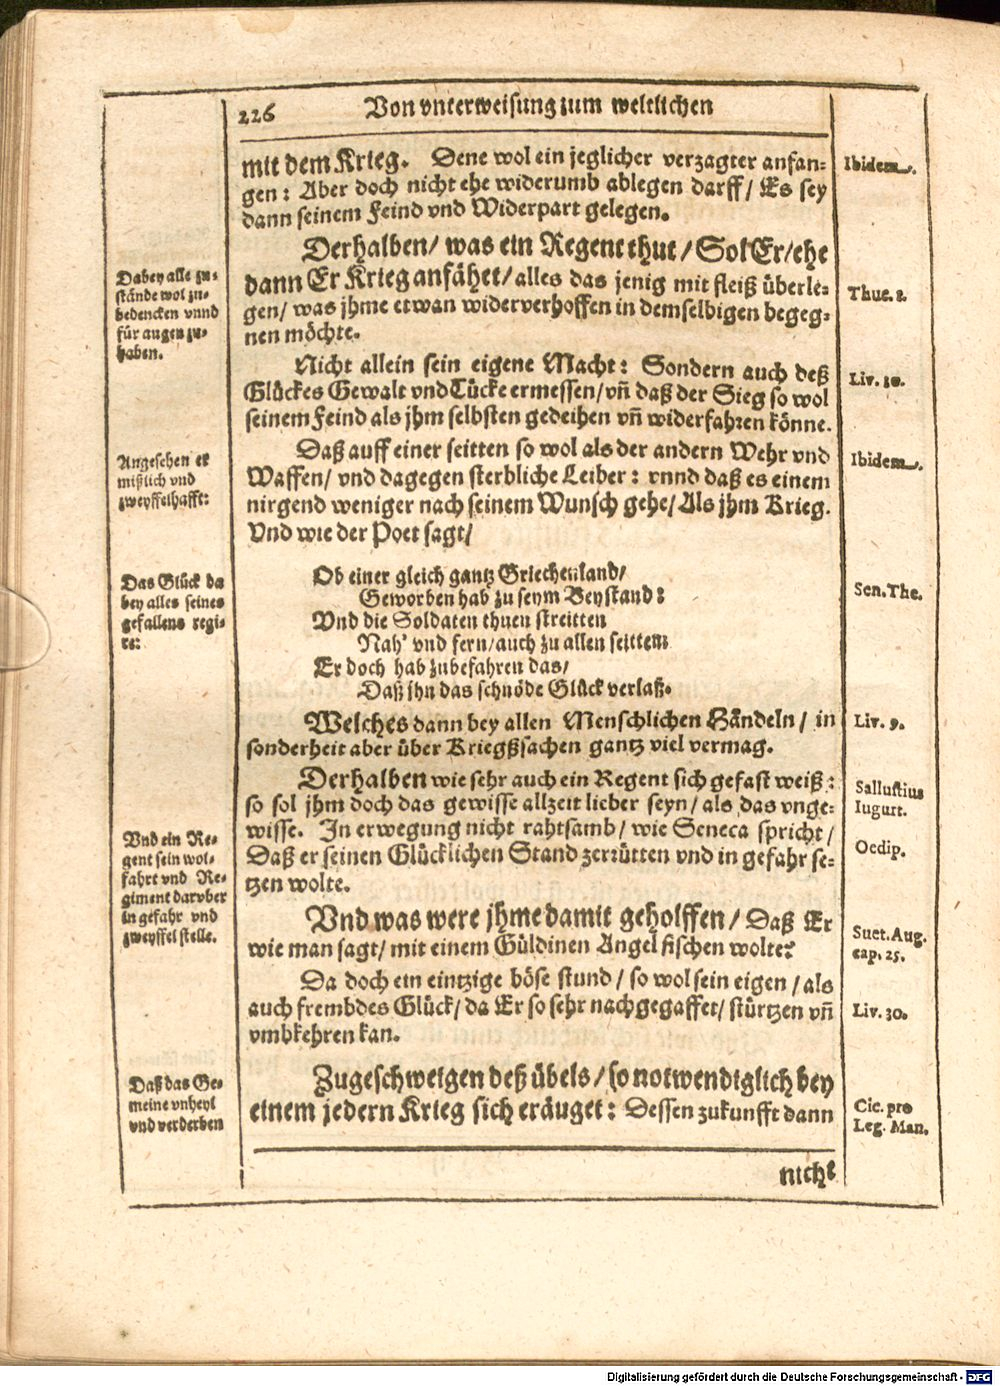 226
Von vnterweisung zum weltlichen
mit dem Krieg. Dene wol ein jeglicher verzagter anfan-
gen: Aber doch nicht ehe widerumb ablegen darff/ Es sey
dann seinem Feind vnd Widerpart gelegen.
Derhalben/ was ein Regent thut/ Sol Er/ ehe
dann Er Krieg anfähet/ alles das jenig mit fleiß überle-
gen/ was jhme etwan widerverhoffen in demselbigen begeg-
nen möchte.
Nicht allein sein eigene Macht: Sondern auch deß
Glückes Gewalt vnd Tücke ermessen/ vñ daß der Sieg so wol
seinem Feind als jhm selbsten gedeihen vñ widerfahren könne.
Daß auff einer seitten so wol als der andern Wehr vnd
Waffen/ vnd dagegen sterbliche Leiber: vnnd daß es einem
nirgend weniger nach seinem Wunsch gehe/ Als jhm Krieg.
Vnd wie der Poet sagt/
Ob einer gleich gantz Griechenland/
Geworben hab zu seym Beystand:
Vnd die Soldaten thuen streitten
Nah' vnd fern/ auch zu allen seitten:
Er doch hab zubefahren das/
Daß jhn das schnöde Glück verlaß.
Welches dann bey allen Menschlichen Händeln/ in
sonderheit aber über Kriegßsachen gantz viel vermag.
Derhalben wie sehr auch ein Regent sich gefast weiß:
so sol jhm doch das gewisse allzeit lieber seyn/ als das vnge-
wisse. In erwegung nicht rahtsamb/ wie Seneca spricht/
Daß er seinen Glücklichen Stand zerrütten vnd in gefahr se-
tzen wolte.
Vnd was were jhme damit geholffen/ Daß Er
wie man sagt/ mit einem Güldinen Angel fischen wolte?
Da doch ein eintzige böse stund/ so wol sein eigen/ als
auch frembdes Glück/ da Er so sehr nachgegaffet/ stürtzen vñ
vmbkehren kan.
Zugeschweigen deß übels/ so notwendiglich bey
einem jedern Krieg sich eräuget: Dessen zukunfft dann
nicht
Dabey alle zu-
stände wol zu-
bedencken vnnd
für augen zu-
haben.
Angesehen er
mißlich vnd
zweyffelhafft:
Das Glück da
bey alles seines
gefallens regi-
re:
Vnd ein Re-
gent sein wol-
fahrt vnd Re-
giment darvber
in gefahr vnd
zweyffel stelle.
Daß das Ge-
meine vnheyl
vnd verderben
Ibidem.
Thuc. 8.
Liv. 30.
Ibidem.
Sen. The.
Liv. 9.
Sallustius
Iugurt.
Oedip.
Suet. Aug.
cap. 25.
Liv. 30.
Cic. pro
Leg. Man.
Digitalisierung gefördert durch die Deutsche Forschungsgemeinschaft - DFG